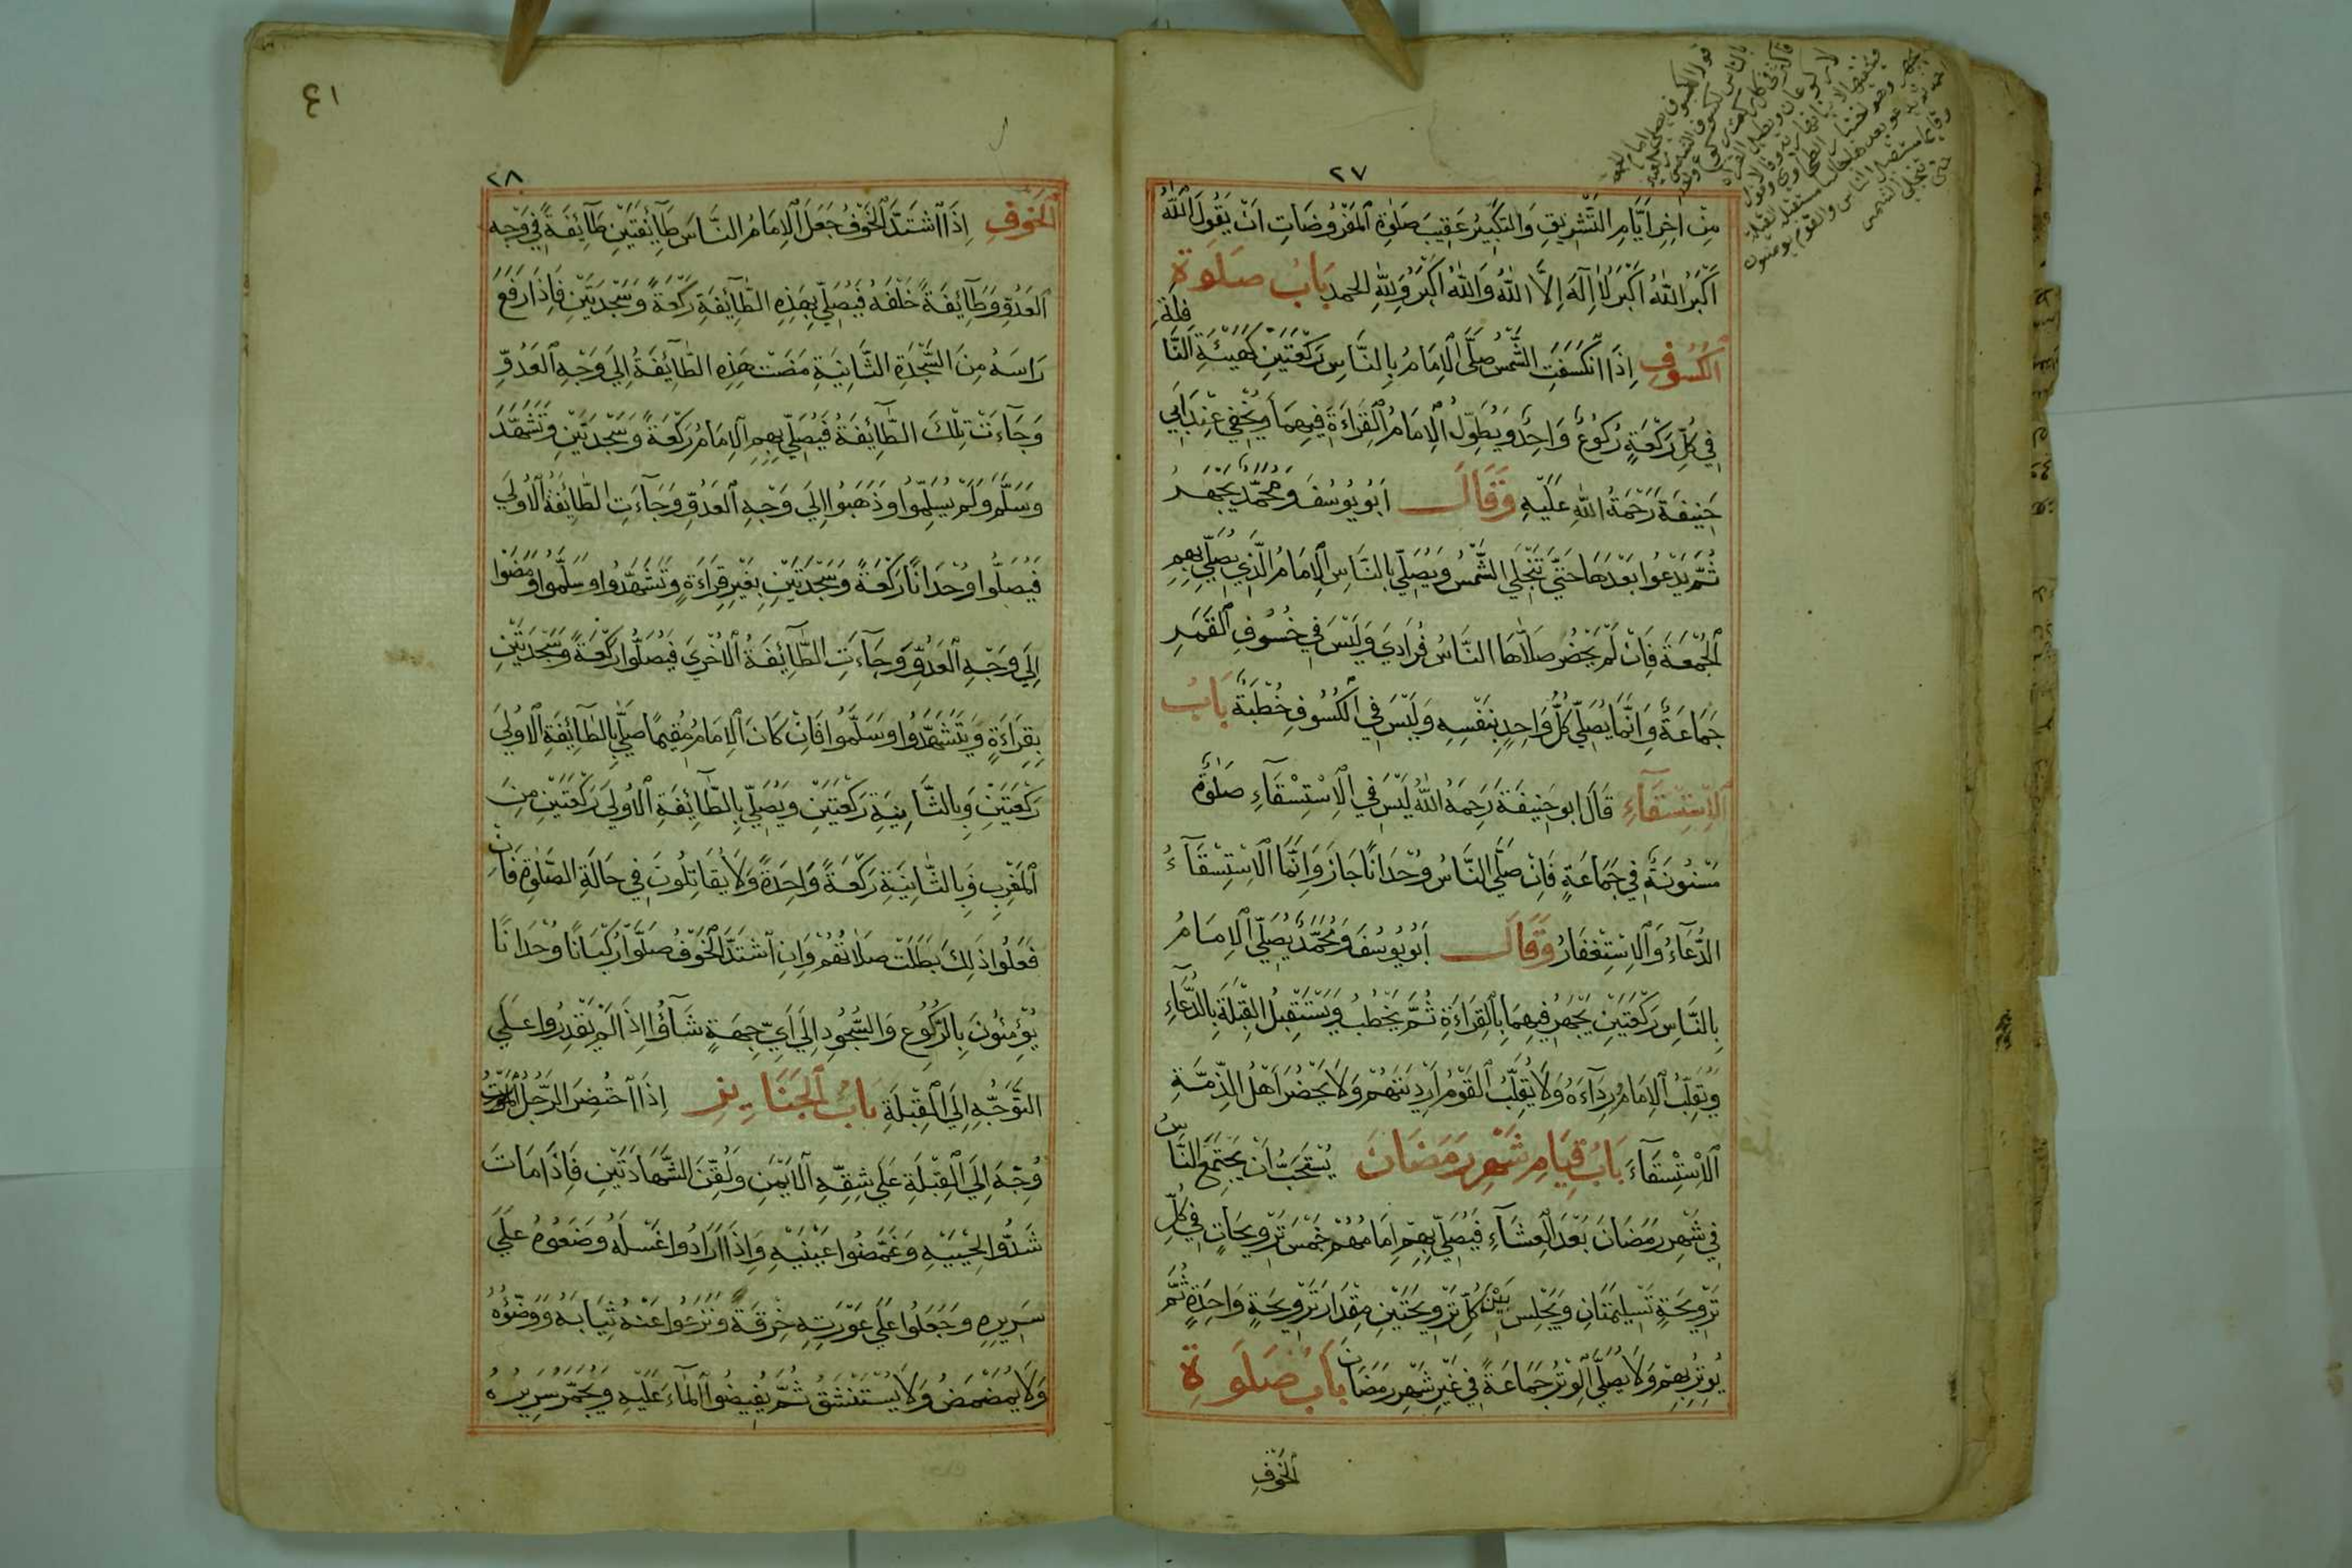 ٢٧
مِنْ اٰخِرِ اَيَّامِ التَّشْرِيقِ وَالتَّكْبِيْرُ عَقِيْبَ صَلٰوةِ الْمَفْرُوضَاتِ اَنْ يَقُولَ اَللّٰهُ
اَكْبَرُ اَللّٰهُ اَكْبَرُ لَا اِلٰهَ اِلَّا اللّٰهُ وَاللّٰهُ اَكْبَرُ وَلِلّٰهِ الحمد بَابُ صَلَوةِ
الْكُسُوفِ اِذَا انْكَسَفَتِ الشَّمْسُ صَلَّى الْاِمَامُ بِالنَّاسِ رَكْعَتَيْنِ كَهَيْئَةِ النَّافِلَةِ
فِي كُلِّ رَكْعَةٍ رُكُوعٌ وَاحِدٌ وَيُطَوِّلُ الْاِمَامُ الْقِرَاءَةَ فِيهِمَا وَيُخْفِي عِنْدَ اَبِي
حَنِيفَةَ رَحْمَةُ اللّٰهِ عَلَيْهِ وَقَالَ اَبُو يُوسُفَ وَمُحَمَّدٌ يَجْهَرُ
ثُمَّ يَدْعُوا بَعْدَهَا حَتَّى تَنْجَلِيَ الشَّمْسُ وَيُصَلِّي بِالنَّاسِ الْاِمَامُ الَّذِي يُصَلِّي بِهِمِ
الْجُمْعَةَ فَاِنْ لَمْ يَحْضُرْ صَلَّاهَا النَّاسُ فُرَادَي وَلَيْسَ فِي خُسُوفِ الْقَمَرِ
جَمَاعَةٌ وَاِنَّمَا يُصَلِّي كُلُّ وَاحِدٍ بِنَفْسِهِ وَلَيْسَ فِي الْكُسُوفِ خُطْبَةٌ بَابُ
الْاِسْتِسْقَآءِ قَالَ ابو حَنِيفَةَ رَحِمَهُ اللّٰهُ لَيْسَ فِي الْاِسْتِسْقَآءِ صَلٰوةٌ
مَسْنُونَةٌ فِي جَمَاعَةٍ فَاِنْ صَلَّي النَّاسُ وُحْدَانًا جَازَ وَاِنَّمَا الْاِسْتِسْقَآءُ
الدُّعَآءُ وَالْاِسْتِغْفَارُ وَقَالَ اَبُو يُوسُفَ وَمُحَمَّدٌ يُصَلِّي الْاِمَامُ
بِالنَّاسِ رَكْعَتَيْنِ يَجْهَرُ فِيهِمَا بِالْقِرَاءَةِ ثُمَّ يَخْطُبُ وَيَسْتَقْبِلُ الْقِبْلَةَ بِالدُّعَآءِ
وَيُقَلِّبُ الْاِمَامُ رِدَآءَهُ وَلَا يُقَلِّبُ الْقَوْمُ اَرْدِيَتَهُمْ وَلَا يَحْضُرُ اَهْلُ الذِّمَّةِ
الْاِسْتِسْقَآءَ بَابُ قِيَامِ شَهْرِ رَمَضَانَ يُسْتَحَبُّ اَنْ يَجْتَمِعَ النَّاسُ
فِي شَهْرِ رَمَضَانَ بَعْدَ الْعِشَآءِ فَيُصَلِّي بِهِمْ اِمَامُهُمْ خَمْسَ تَرْوِيحَاتٍ فِي كُلِّ
تَرْوِيحَةٍ تَسْلِيمَتَانِ وَيَجْلِسُ بَيْنَ كُلِّ تَرْوِيحَتَيْنِ مِقْدَارَ تَرْوِيحَةٍ وَاحِدَةٍ ثُمَّ
يُوتِرُ بِهِمْ وَلَا يُصَلَّي الْوِتْرُ جَمَاعَةً فِي غَيْرِ شَهْرِ رَمَضَانَ بَابُ صَلَوةِ
الْخَوْفِ
٤١
٢٨
الْخَوْفِ اِذَا اشْتَدَّ الْخَوْفُ جَعَلَ الْاِمَامُ النَّاسَ طَآئِفَتَيْنِ طَآئِفَةً فِي وَجْهِ
الْعَدُوِّ وَطَآئِفَةً خَلْفَهُ فَيُصَلِّي بِهَذِهِ الطَّآئِفَةِ رَكْعَةً وَسَجْدَتَيْنِ فَاِذَا رَفَعَ
رَاسَهُ مِنَ السَّجْدَةِ الثَّانِيَةِ مَضَتْ هَذِهِ الطَّآئِفَةُ اِلَي وَجْهِ الْعَدُوِّ
وَجَآءَتْ تِلْكَ الطَّآئِفَةُ فَيُصَلِّي بِهِمِ الْاِمَامُ رَكْعَةً وَسَجْدَتَيْنِ وَتَشَهَّدَ
وَسَلَّمَ وَلَمْ يُسَلِّمُوا وَذَهَبُوا اِلَي وَجْهِ الْعَدُوِّ وَجَآءَتِ الطَّآئِفَةُ الْاُولَي
فَيُصَلُّوا وُحْدَانًا رَكْعَةً وَسَجْدَتَيْنِ بِغَيْرِ قِرَاءَةٍ وَتَشَهَّدُوا وَسَلَّمُوا وَمَضَوْا
اِلَي وَجْهِ الْعَدُوِّ وَجَآءَتِ الطَّآئِفَةُ الْاُخْرَي فَيُصَلُّوا رَكْعَةً وَسَجْدَتَيْنِ
بِقِرَاءَةٍ وَيَتَشَهَّدُوا وَسَلَّمُوا فَاِنْ كَانَ الْاِمَامُ مُقِيمًا صَلَّي بِالطَّآئِفَةِ الْاُولَي
رَكْعَتَيْنِ وَبِالثَّانِيَةِ رَكْعَتَيْنِ وَيُصَلِّي بِالطَّآئِفَةِ الْاُولَي رَكْعَتَيْنِ مِنَ
الْمَغْرِبِ وَبِالثَّانِيَةِ رَكْعَةً وَاحِدَةً وَلَا يُقَاتِلُونَ فِي حَالَةِ الصَّلٰوةِ فَاِنْ
فَعَلُوا ذَلِكَ بَطَلَتْ صَلَاتُهُمْ وَاِنِ اشْتَدَّ الْخَوْفُ صَلَّوْا رُكْبَانًا وُحْدَانًا
يُؤْمِئُونَ بِالرُّكُوعِ وَالسُّجُودِ اِلَي اَيِّ جِهَةٍ شَآؤُا اِذَا لَمْ يَقْدِرُوا عَلَي
التَّوَجُّهِ اِلَي الْقِبْلَةِ بَابُ الْجَنَايِزِ اِذَا احْتُضِرَ الرَّجُلُ
وُجِّهَ اِلَي الْقِبْلَةِ عَلَي شِقِّهِ الْاَيْمَنِ وَلُقِّنَ الشَّهَادَتَيْنِ فَاِذَا مَاتَ
شَدُّوا لِحْيَيْهِ وَغَمَّضُوا عَيْنَيْهِ وَاِذَا اَرَادُوا غَسْلَهُ وَضَعُوهُ عَلَي
سَرِيرِهِ وَجَعَلُوا عَلَي عَوْرَتِهِ خِرْقَةً وَنَزَعُوا عَنْهُ ثِيَابَهُ وَوَضَّؤُهُ
وَلَا يُمَضْمَضُ وَلَا يُسْتَنْشَقُ ثُمَّ يُفِيضُوا الْمَآءَ عَلَيْهِ وَيُجَمَّرُ سَرِيرُهُ